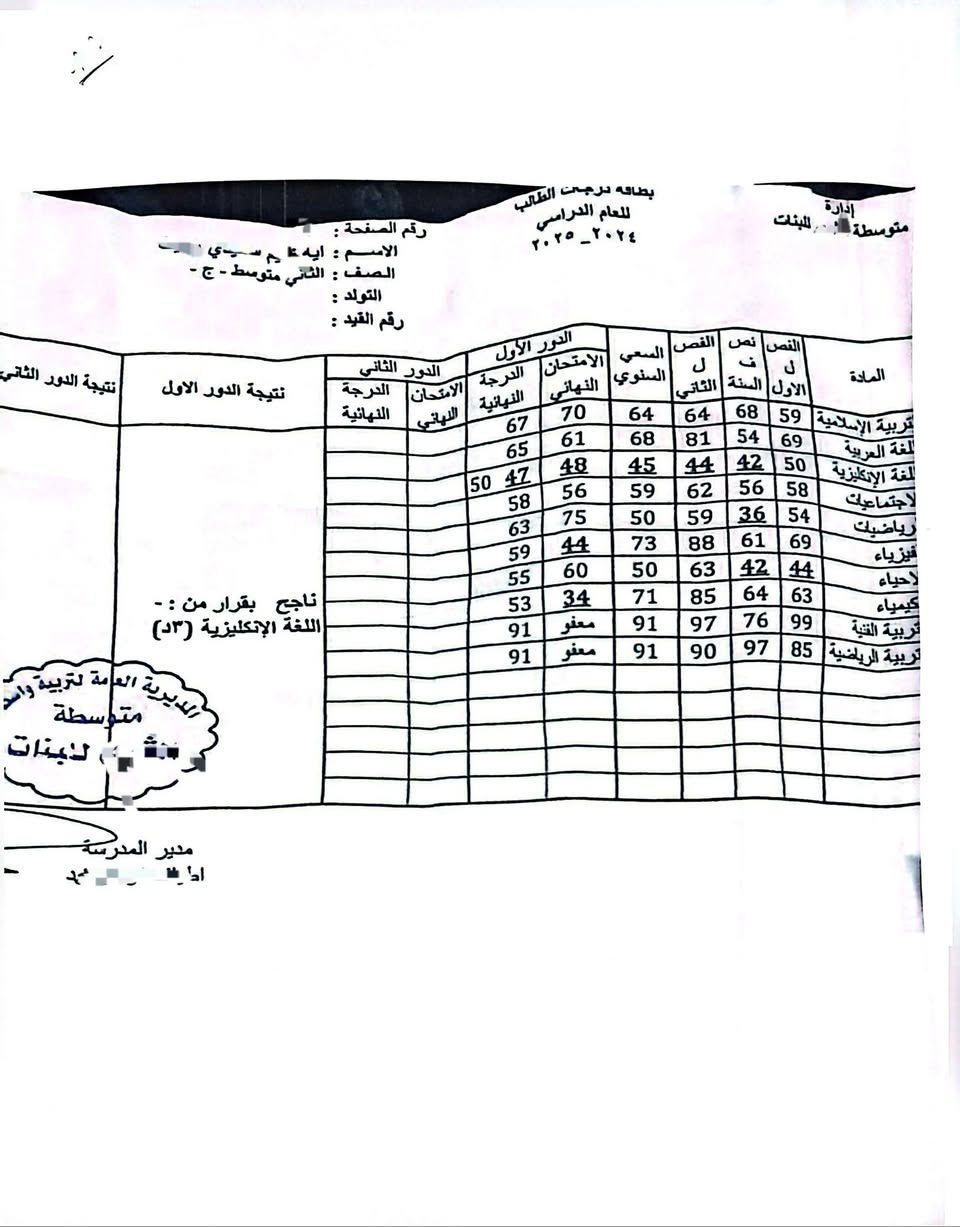 بطاقة درجات الطالب
للعام الدراسي
٢٠٢٤_ ٢٠٢٥
إدارة
متوسطة للبنات
رقم الصفحة :
الاسم : ايه
الصف : الثاني متوسط - ج -
التولد :
رقم القيد :
المادة | الفصل الاول | نصف السنة | الفصل الثاني | السعي السنوي | الدور الأول | الدور الثاني | نتيجة الدور الاول | نتيجة الدور الثاني
الامتحان النهائي | الدرجة النهائية | الامتحان النهائي | الدرجة النهائية
تربية الإسلامية 59 68 64 64 70 67
لغة العربية 69 54 81 68 61 65
لغة الإنكليزية 50 42 44 45 48 47 50
لاجتماعيات 58 56 62 59 56 58
رياضيات 54 36 59 50 75 63
فيزياء 69 61 88 73 44 59
لاحياء 44 42 63 50 60 55
كيمياء 63 64 85 71 34 53
تربية الفنية 99 76 97 91 معفو 91
تربية الرياضية 85 97 90 91 معفو 91
ناجح بقرار من : -
اللغة الإنكليزية (٣د)
المديرية العامة لتربية واسط
متوسطة
للبنات
مدير المدرسة